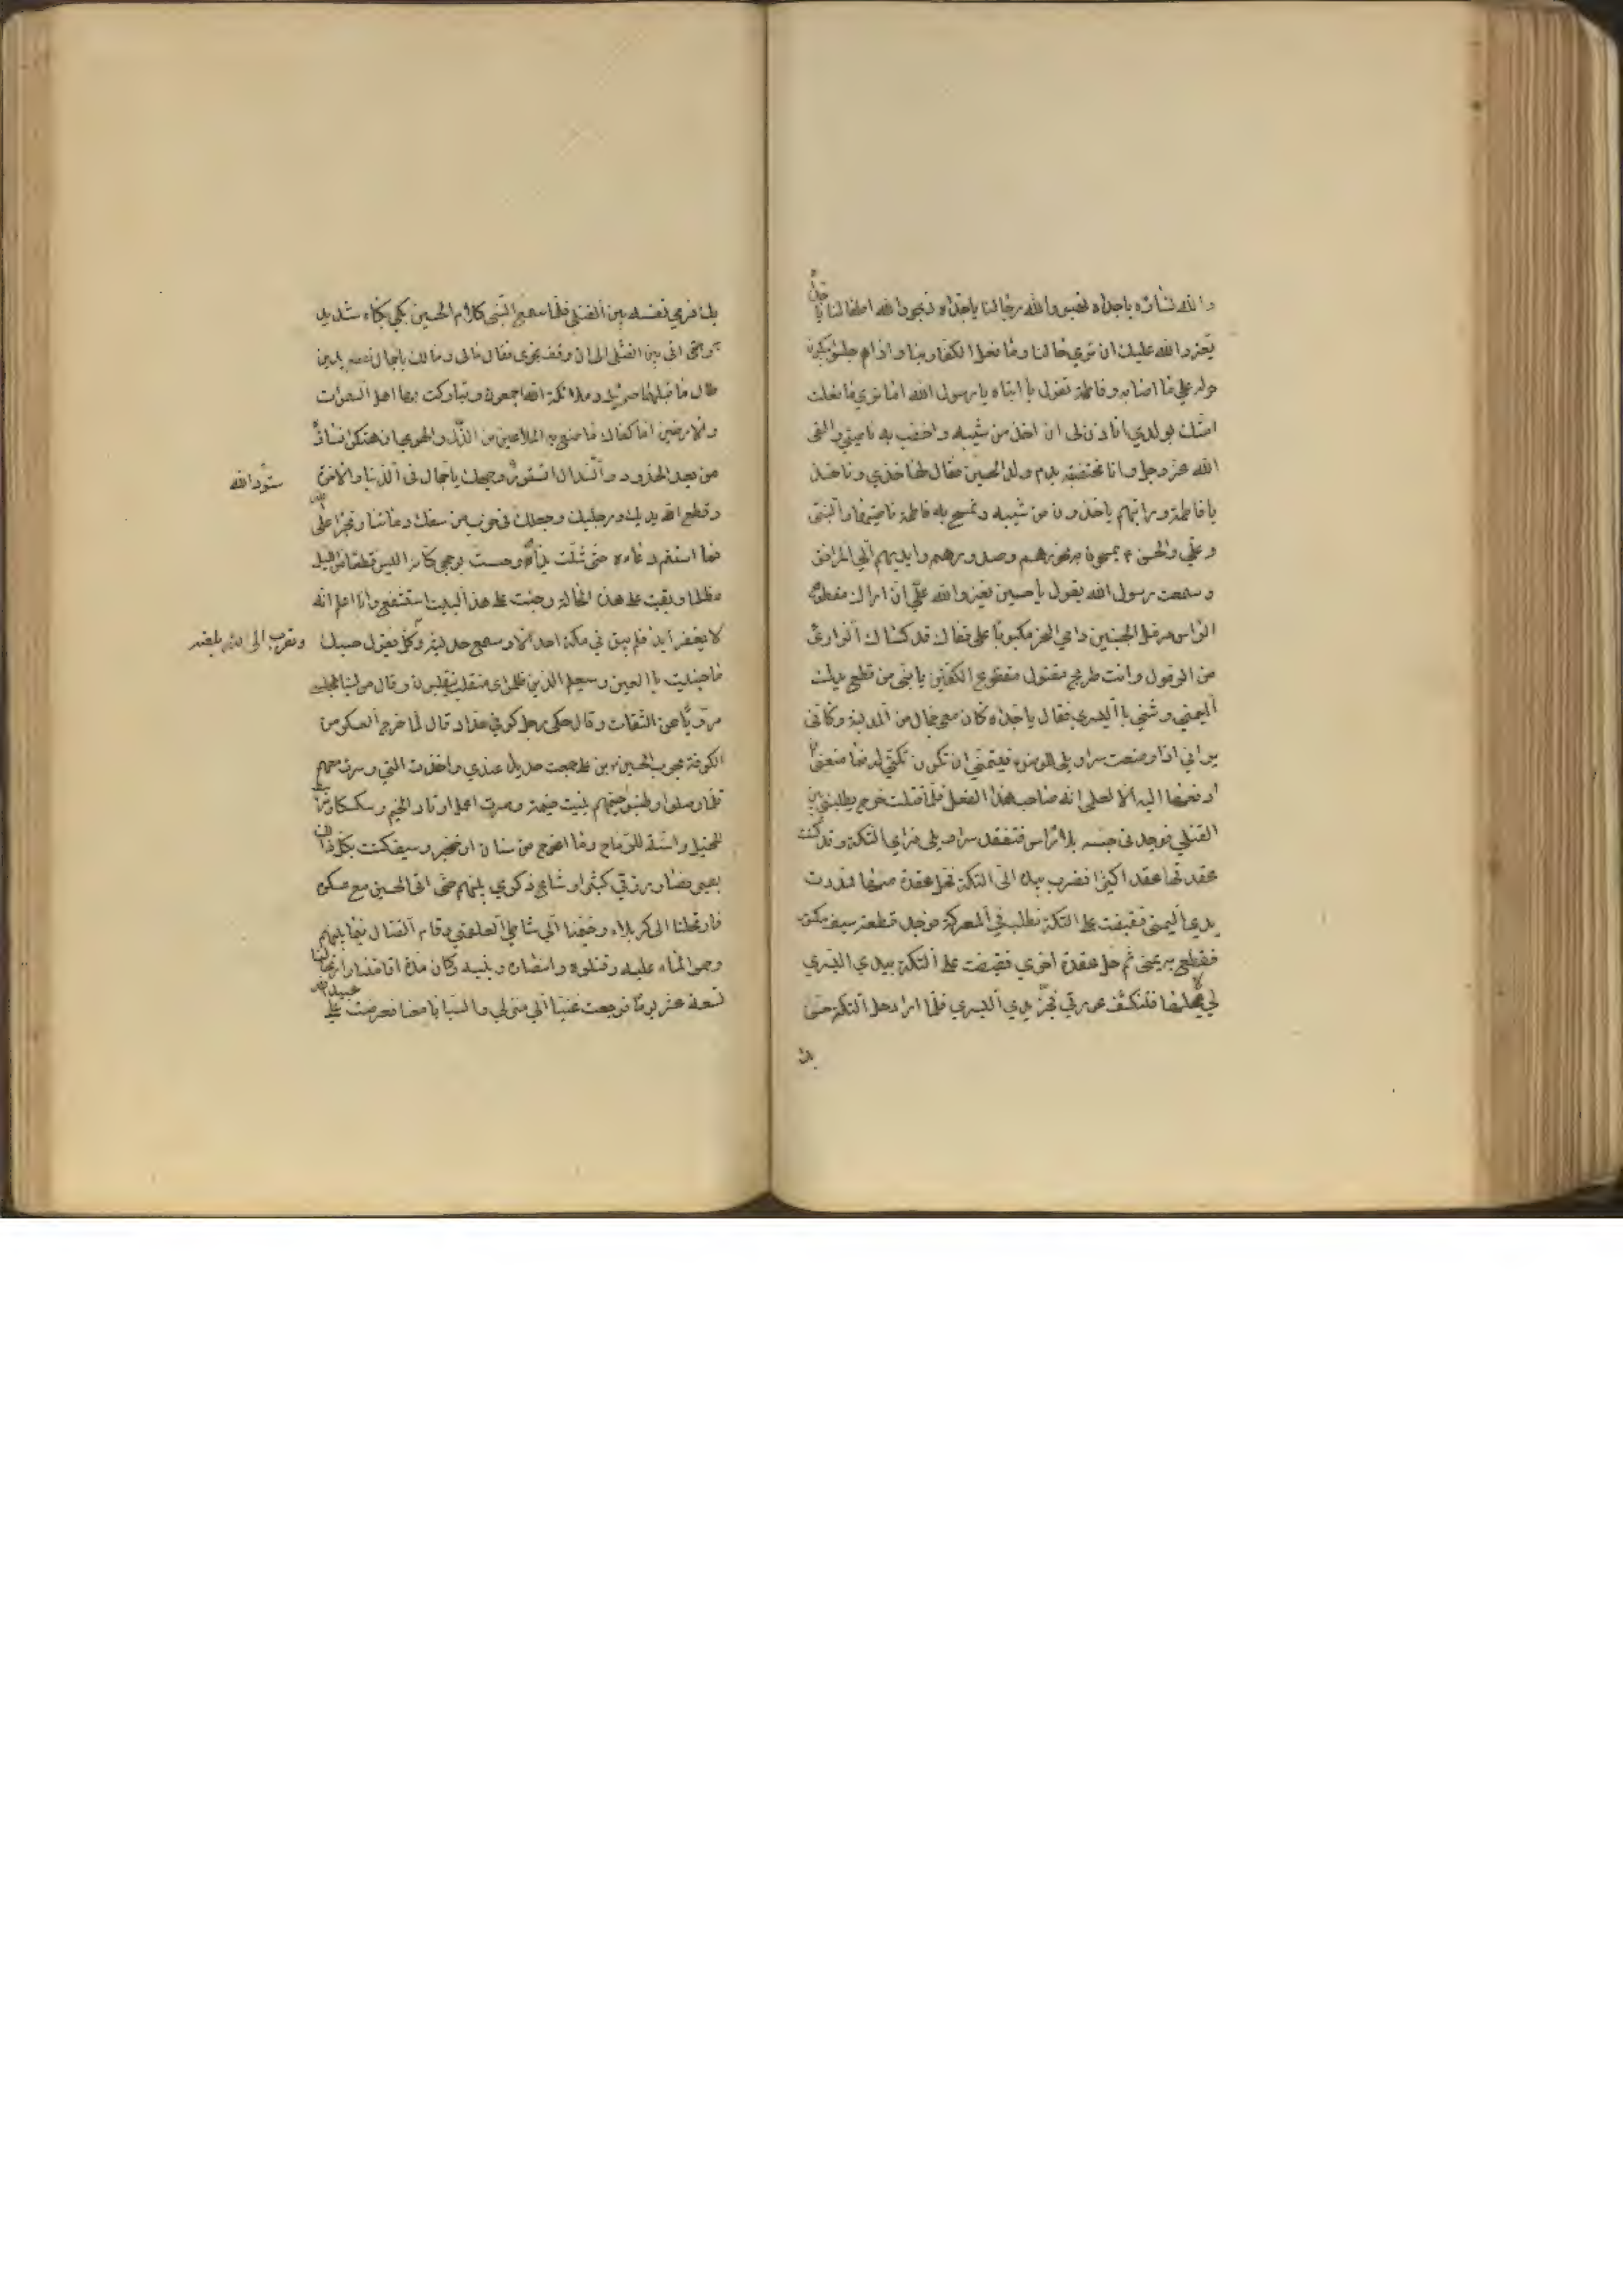 والله نساؤه ياجداه نهبو والله رجالنا ياجداه ذبحو والله اطفالنا يا جداه
يعزوالله عليك ان تري حالنا وما فعل الكفار بنا واذا هم جلسو يبكون
حوله علي ما اصابه وفاطمة تقول يا ابتاه يا رسول الله اما تري ما فعلت
امتك بولدي اتاذن لي ان اخذ من شيبه واخضب به ناصيتي والقى
الله عز وجل وانا مختضبة بدم ولد الحسين فقال لها خذي وناخذ
يا فاطمة ورايتهم ياخذون من شيبه وتمسح به فاطمة ناصيتها والنبي
وعلي والحسن ع يمسحون به نحورهم وصدورهم وايديهم الي المرافق
وسمعت رسول الله يقول يا حسين يعزوالله علي ان اراك مقطوع
الراس مرمل الجبينين دامي النحر مكبوبا على قفاك قد كساك الذواري
من الرمول وانت طريح مقتول مقطوع الكفين يا بني من قطع يدك
اليمني وثني باليسري فقال ياجداه كان معي جمال من المدينة وكان
يراني اذا وضعت سراويلي للوضوء فيتمني ان تكون تكتي له فما منعني
ادفعها اليه الا لعلمي انه صاحب هذا الفعل فلما قتلت خرج يطلبني بين
القتلي فوجدني جسم بلا راس فتفقد سراويلي فراي التكة وقد كنت
عقدتها عقدا كثيرا فضرب بيده الى التكة فحل عقدة منها فمددت
يدي اليمني فقبضت على التكة فطلب في المعركة فوجد قطعة سيف مكسور
فقطع به يميني ثم حل عقدة اخري فقبضت على التكة بيدي اليسري
لي لا يحلها فتنكشف عورتي فجز يدي اليسري فلما اراد حل التكة حس
بك
بك فرمي نفسه بين القتلي فلما سمع النبي كلام الحسين بكي بكاء شديد
واتى الي بين القتلي الي ان وقف نحوي فقال مالي ومالك ياجمال تقطع يدين
طال ما قبلهما جبرئيل وملائكة الله اجمعون وتباركت بها اهل السموات
والارضين اما كفاك ما صنع به الملاعين من الذل والهوان هتكو نساؤه
من بعد الخدور وانسدال الستور سود الله وجهك ياجمال في الدنيا والاخرة
وقطع الله يديك ورجليك وجعلك في حزب من سفك دمائنا وتجرا على الله
فما استتم دعاءه حتى شلت يداي وحسيت بوجهي كانه البس قطعا من الليل
مظلما وبقيت على هذه الحالة وجئت على هذا البيت استشفع وانا اعلم انه
لا يغفر لي ابدا فلم يبق في مكة احد الا وسمع حديثه وتقرب الى الله بلعنه وكل يقول حسبك
ما جنيت يا لعين وسيعلم الذين ظلموا اي منقلب ينقلبون وقال
مرويا عن الثقات وقال حكى رجل كوفي حداد قال لما خرج العسكر من
الكوفة لحرب الحسين بن علي جمعت حديد عندي واخذت التي وسرت معهم
فلما وصلوا وطنبو خيمهم بنيت خيمة وصرت اعمل اوتاد الخيم وسككا ومرابط
للخيل واسنة للرماح وما اعوج من سنان او خنجر وسيف كنت بكل ذلك
بصير فصار رزقي كثيرا وشاع ذكري بينهم حتى اتى الحسين مع عسكره
فارتحلنا الى كربلاء وخيمنا الي شاطئ العلقمي وقام القتال فيما بينهم
وحموا الماء عليه وقتلوه وانصاره وبنيه وكان مدة اقامتنا وارتحالنا
تسعة عشر يوما فرجعت غنيا الي منزلي والسبايا معنا فعرضت على عبيد الله